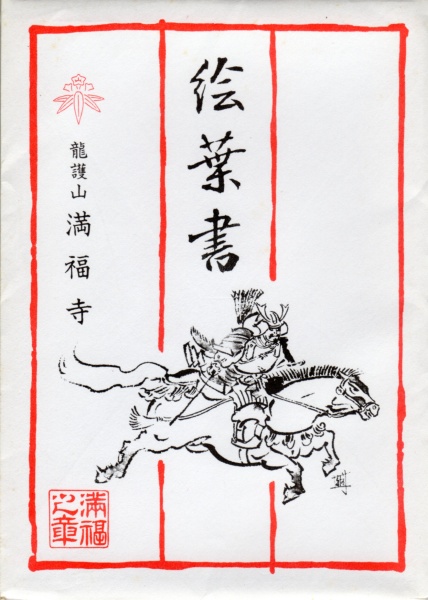 絵葉書
龍護山 満福寺
満福
之章